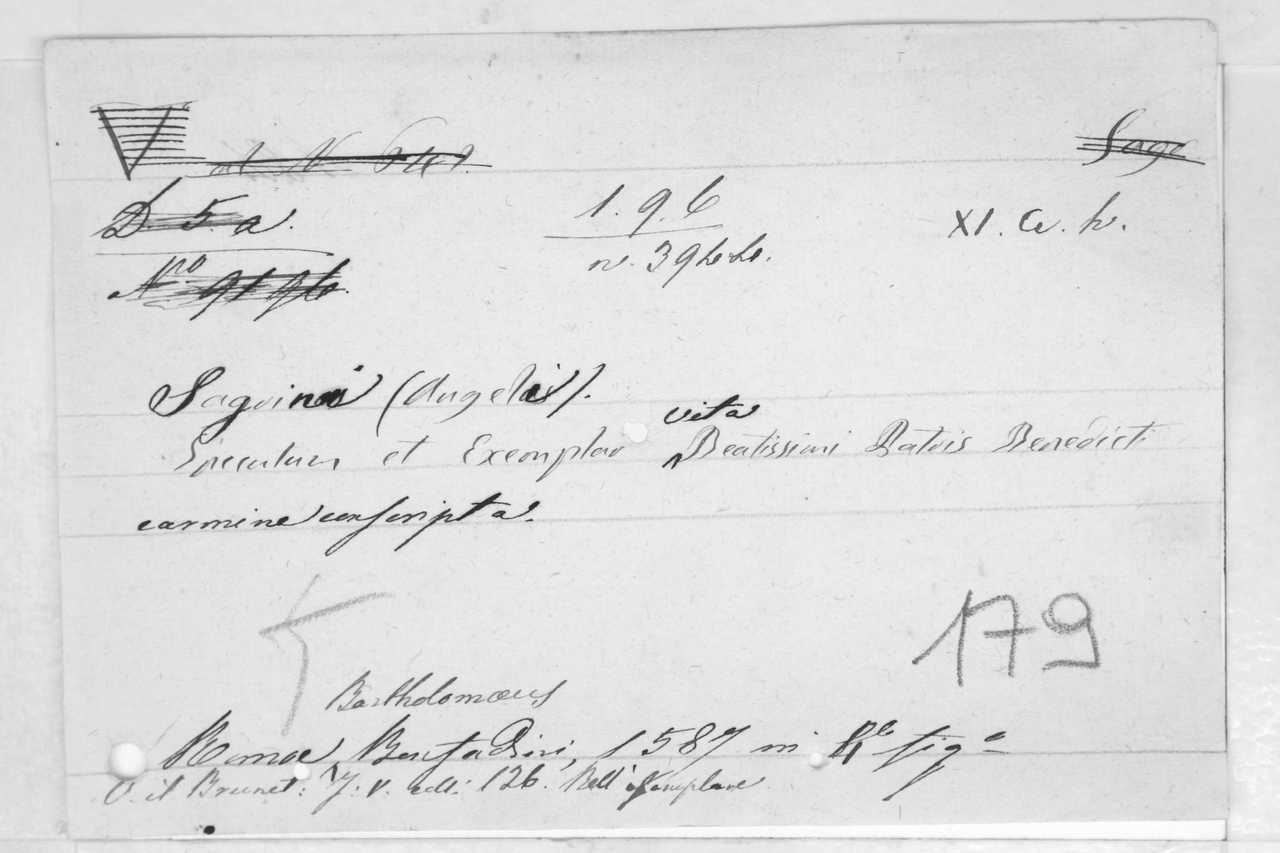 Sago
D. 5. a.
1. 9. 6
XI. a. h.
Nro
Sagrini (Angeli).
vita
Speculum et Exemplar Beatissimi Patris Benedicti
carmine conscripta.
179
Bartholomæus
Romæ, Bonfadini, 1587 in 4° fig°
V. il Brunet: T. v. col. 126. Bell' esemplare